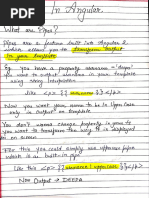 In Angular
What are Pipes?
Pipes are a feature built into Angular 2
which allows you to transform output
in your template
Eg. You have a property username = 'deepa'
you want to output username in your template
using string Interpolation
Like <p> {{ username }} </p>
Now you want your name to be in Upper Case
only in Output or template
You don't wanna change property is you
want to transform the way it is displayed
on screen
For this you could simply use uppercase Pipes
which is a built-in pipe
Like this <p> {{ username | uppercase }} </p>
Now Output → DEEPA